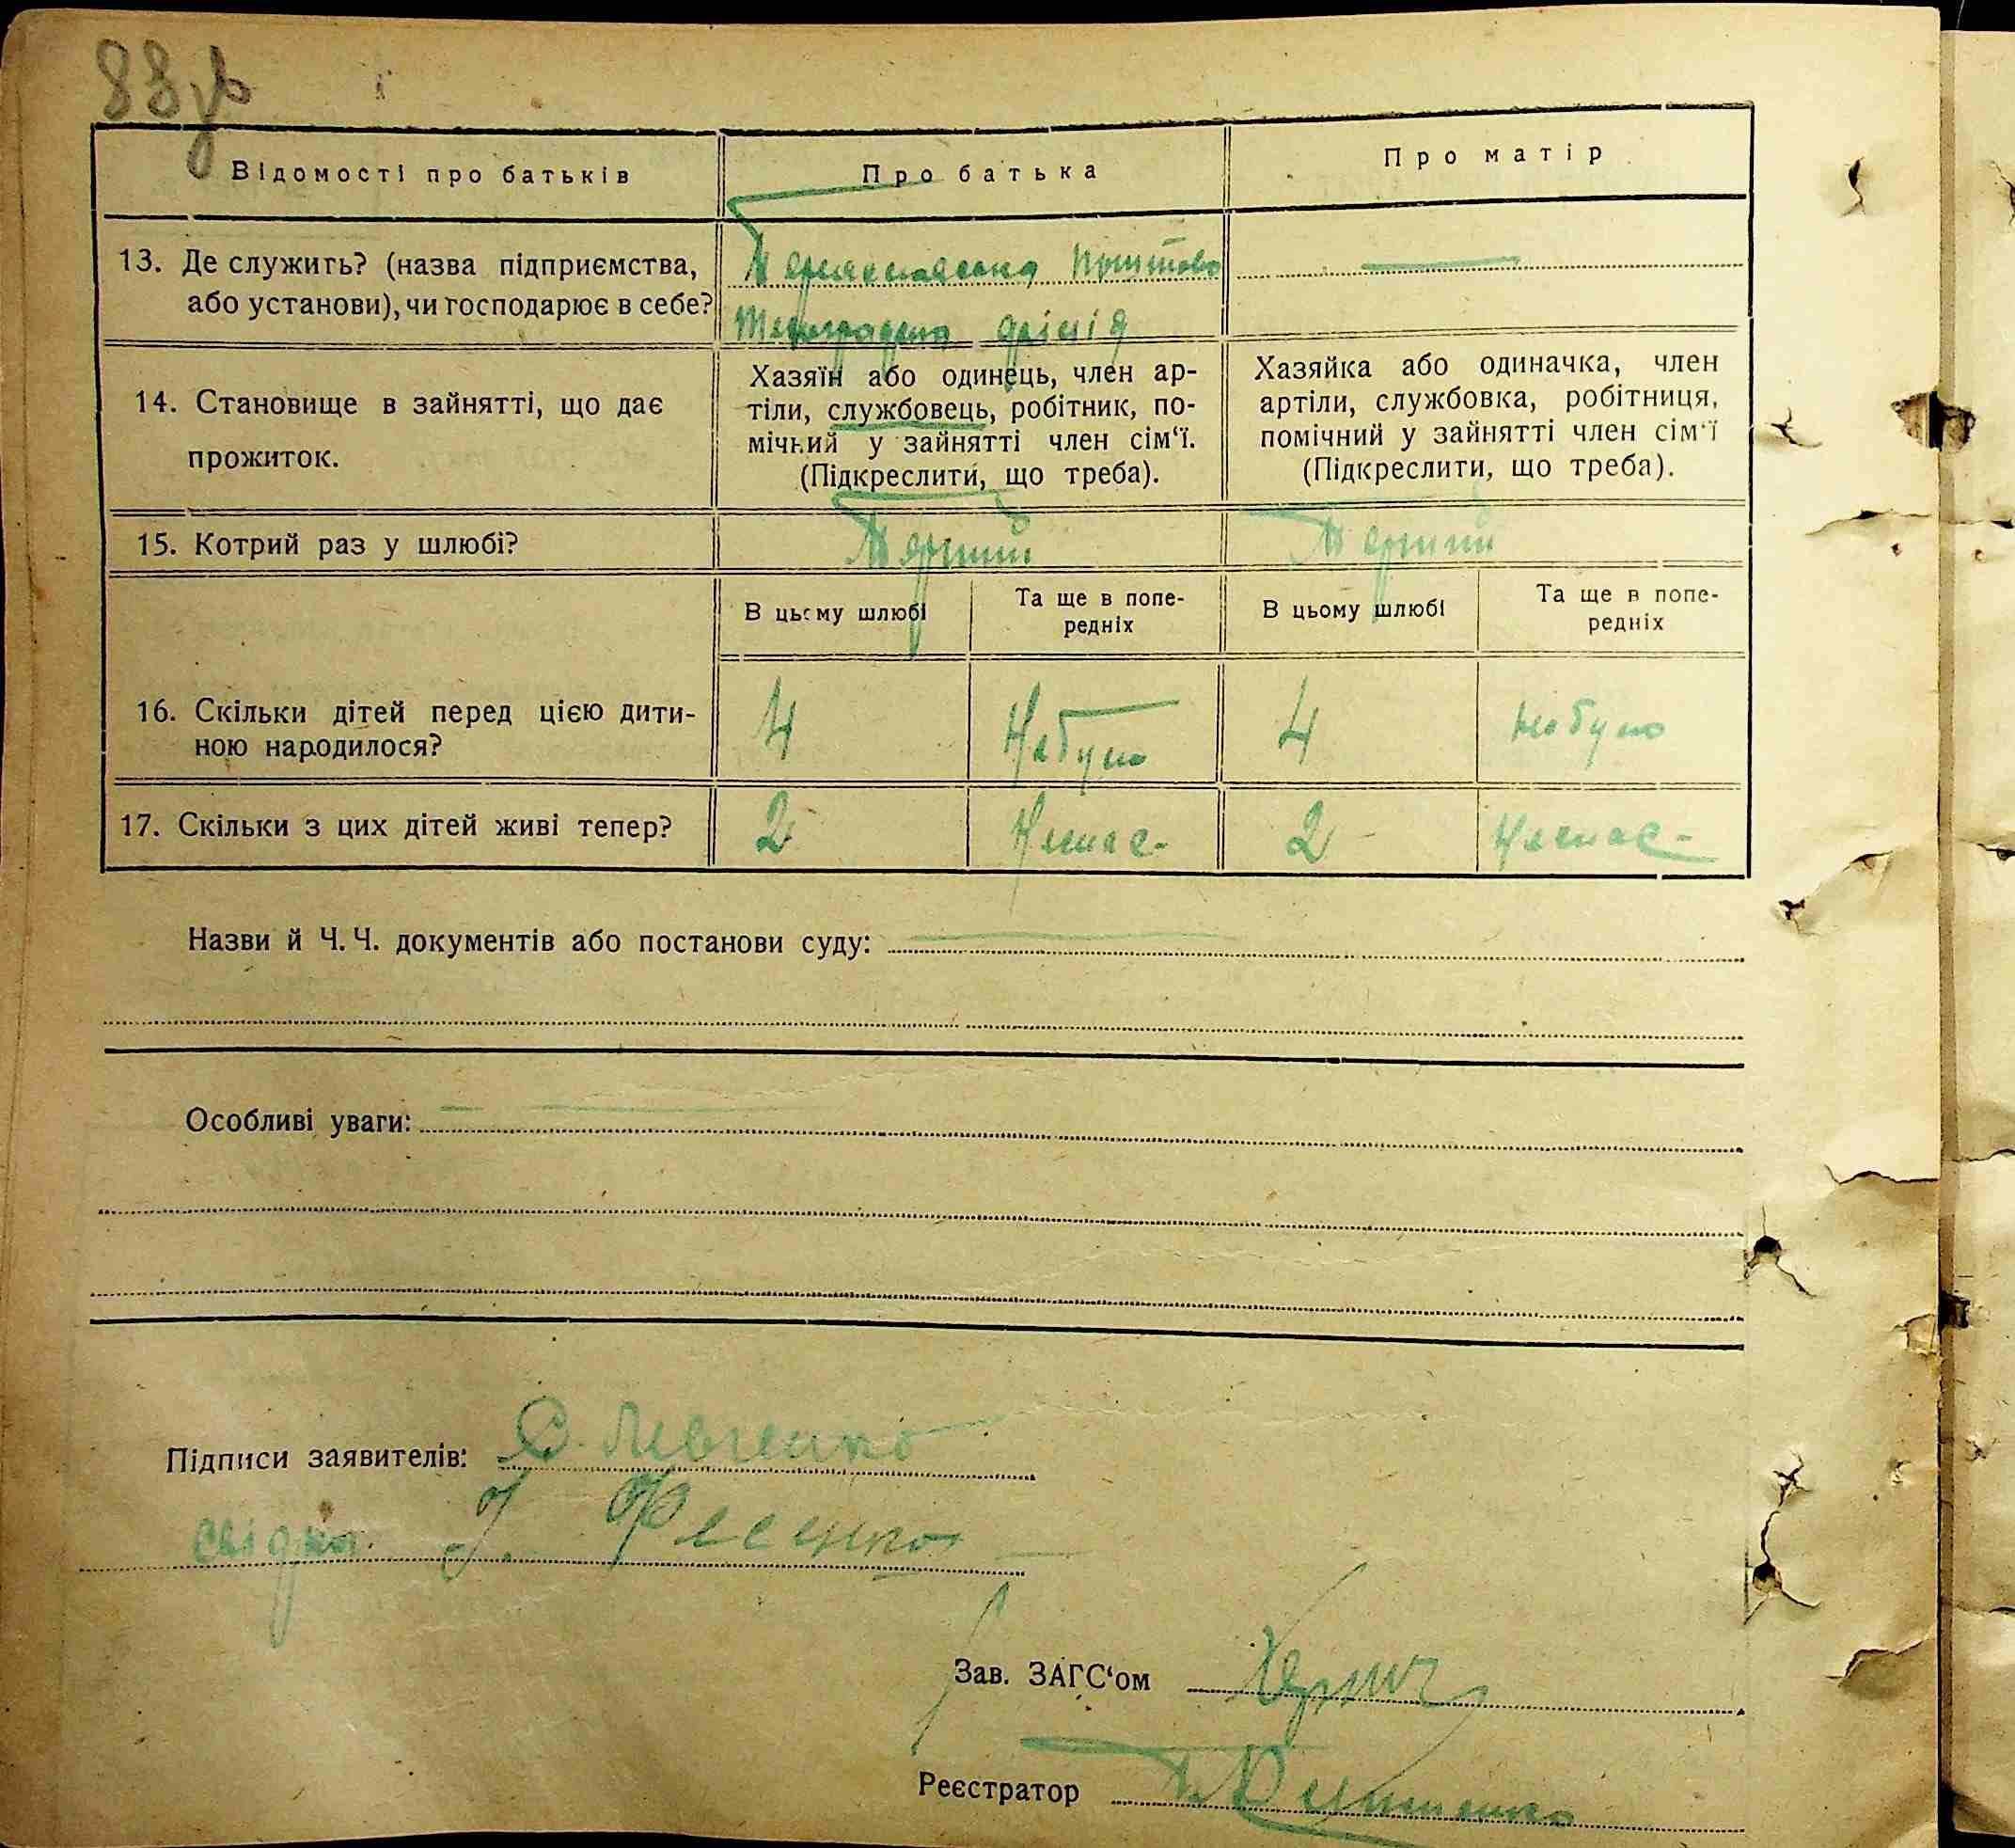 88зв
Відомості про батьків
Про батька
Про матір
13. Де служить? (назва підприємства,
або установи), чи господарює в себе?
Переяславська Поштово
Телеграфна
14. Становище в зайнятті, що дає
прожиток.
Хазяїн або одинець, член ар-
тіли, службовець, робітник, по-
мічний у зайнятті член сім‘ї.
(Підкреслити, що треба).
Хазяйка або одиначка, член
артіли, службовка, робітниця,
помічний у зайнятті член сім‘ї
(Підкреслити, що треба).
15. Котрий раз у шлюбі?
Перший
Перший
В цьому шлюбі
Та ще в попе-
редніх
В цьому шлюбі
Та ще в попе-
редніх
16. Скільки дітей перед цією дити-
ною народилося?
4
Небуло
4
Небуло
17. Скільки з цих дітей живі тепер?
2
Немає-
2
Немає-
Назви й Ч. Ч. документів або постанови суду:
Особливі уваги:
Підписи заявителів: С. Левченко
свідки. Фесенко
Зав. ЗАГС‘ом
Реєстратор